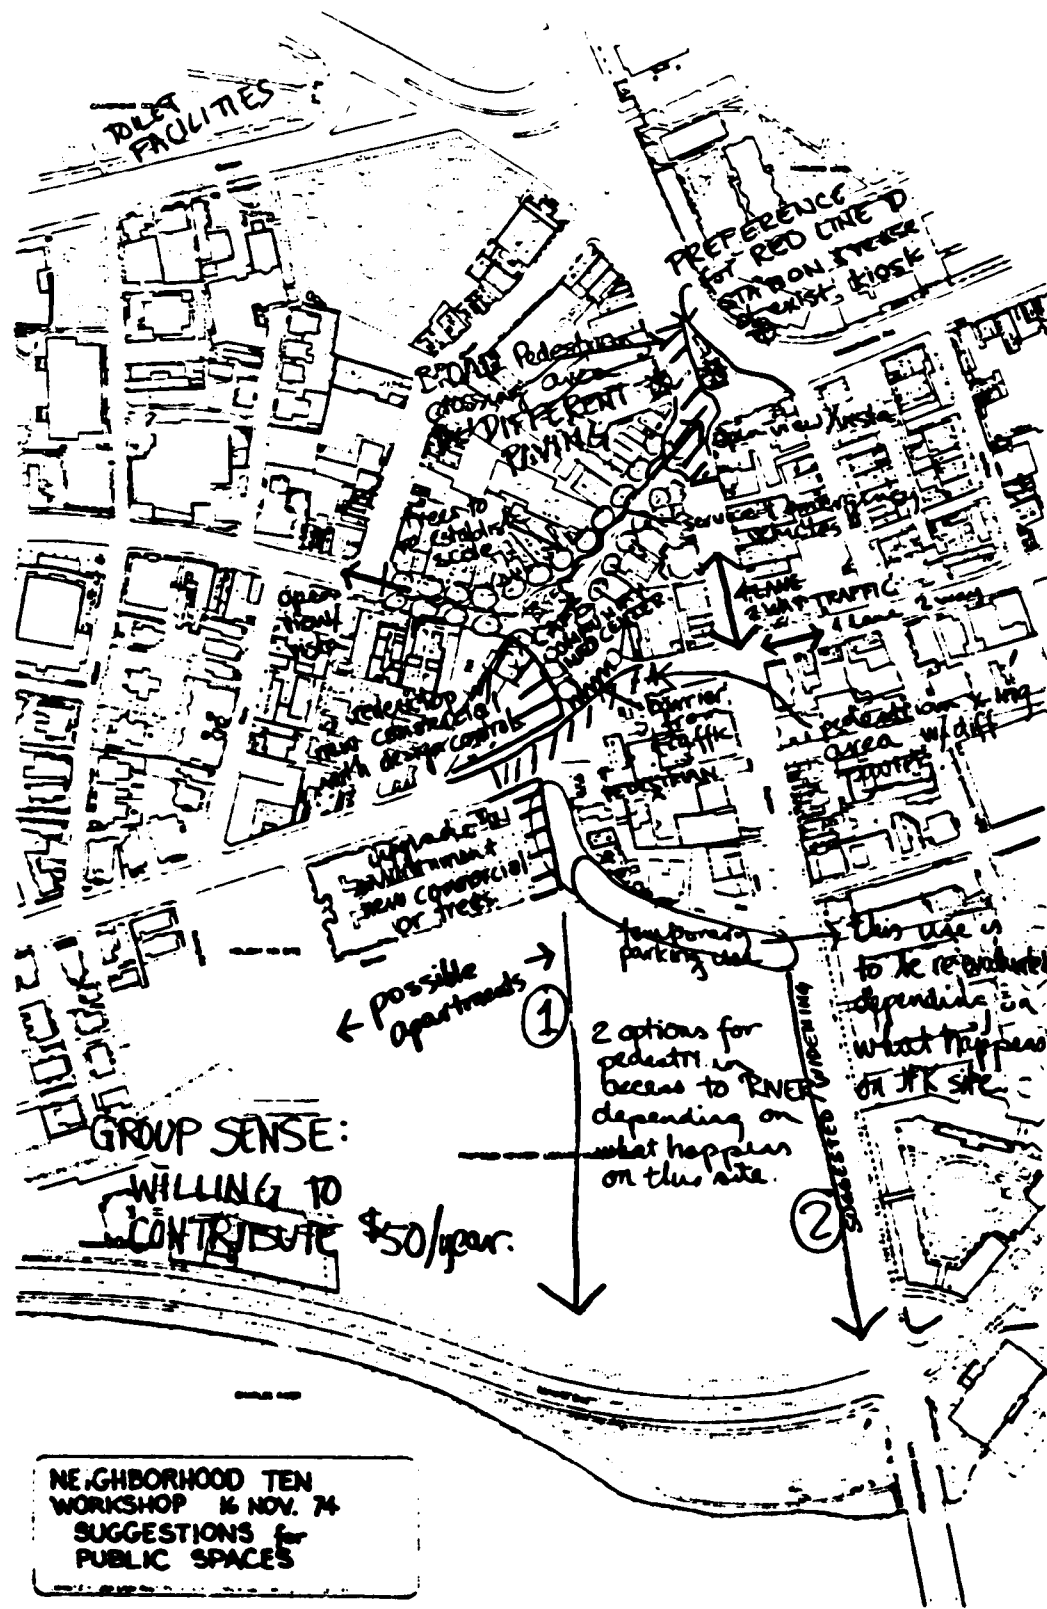 TOILET
FACILITIES
PREFERENCE
for RED LINE
STATION
exist. kiosk
BROAD Pedestrian
crossing area
DIFFERENT
PAVING
open view/vista
trees to
establish
scale
service & emergency
vehicles
4 LANE
2 WAY TRAFFIC
4 lane 2 way
open
view
vista
COMMUNITY
MED CENTER
redevelop
new commercial
with design controls
barrier
from
traffic
PEDESTRIAN
pedestrian x-ing
area w/diff
upgrade
environment
new commercial
or trees
temporary
parking use
this use is
to be re-evaluated
depending on
what happens
on JFK site
possible
apartments
1
2 options for
pedestrian
access to RIVER
depending on
what happens
on this site.
SUGGESTED WIDENING
2
GROUP SENSE:
WILLING TO
CONTRIBUTE $50/year.
CHARLES RIVER
NEIGHBORHOOD TEN
WORKSHOP 16 NOV. 74
SUGGESTIONS for
PUBLIC SPACES